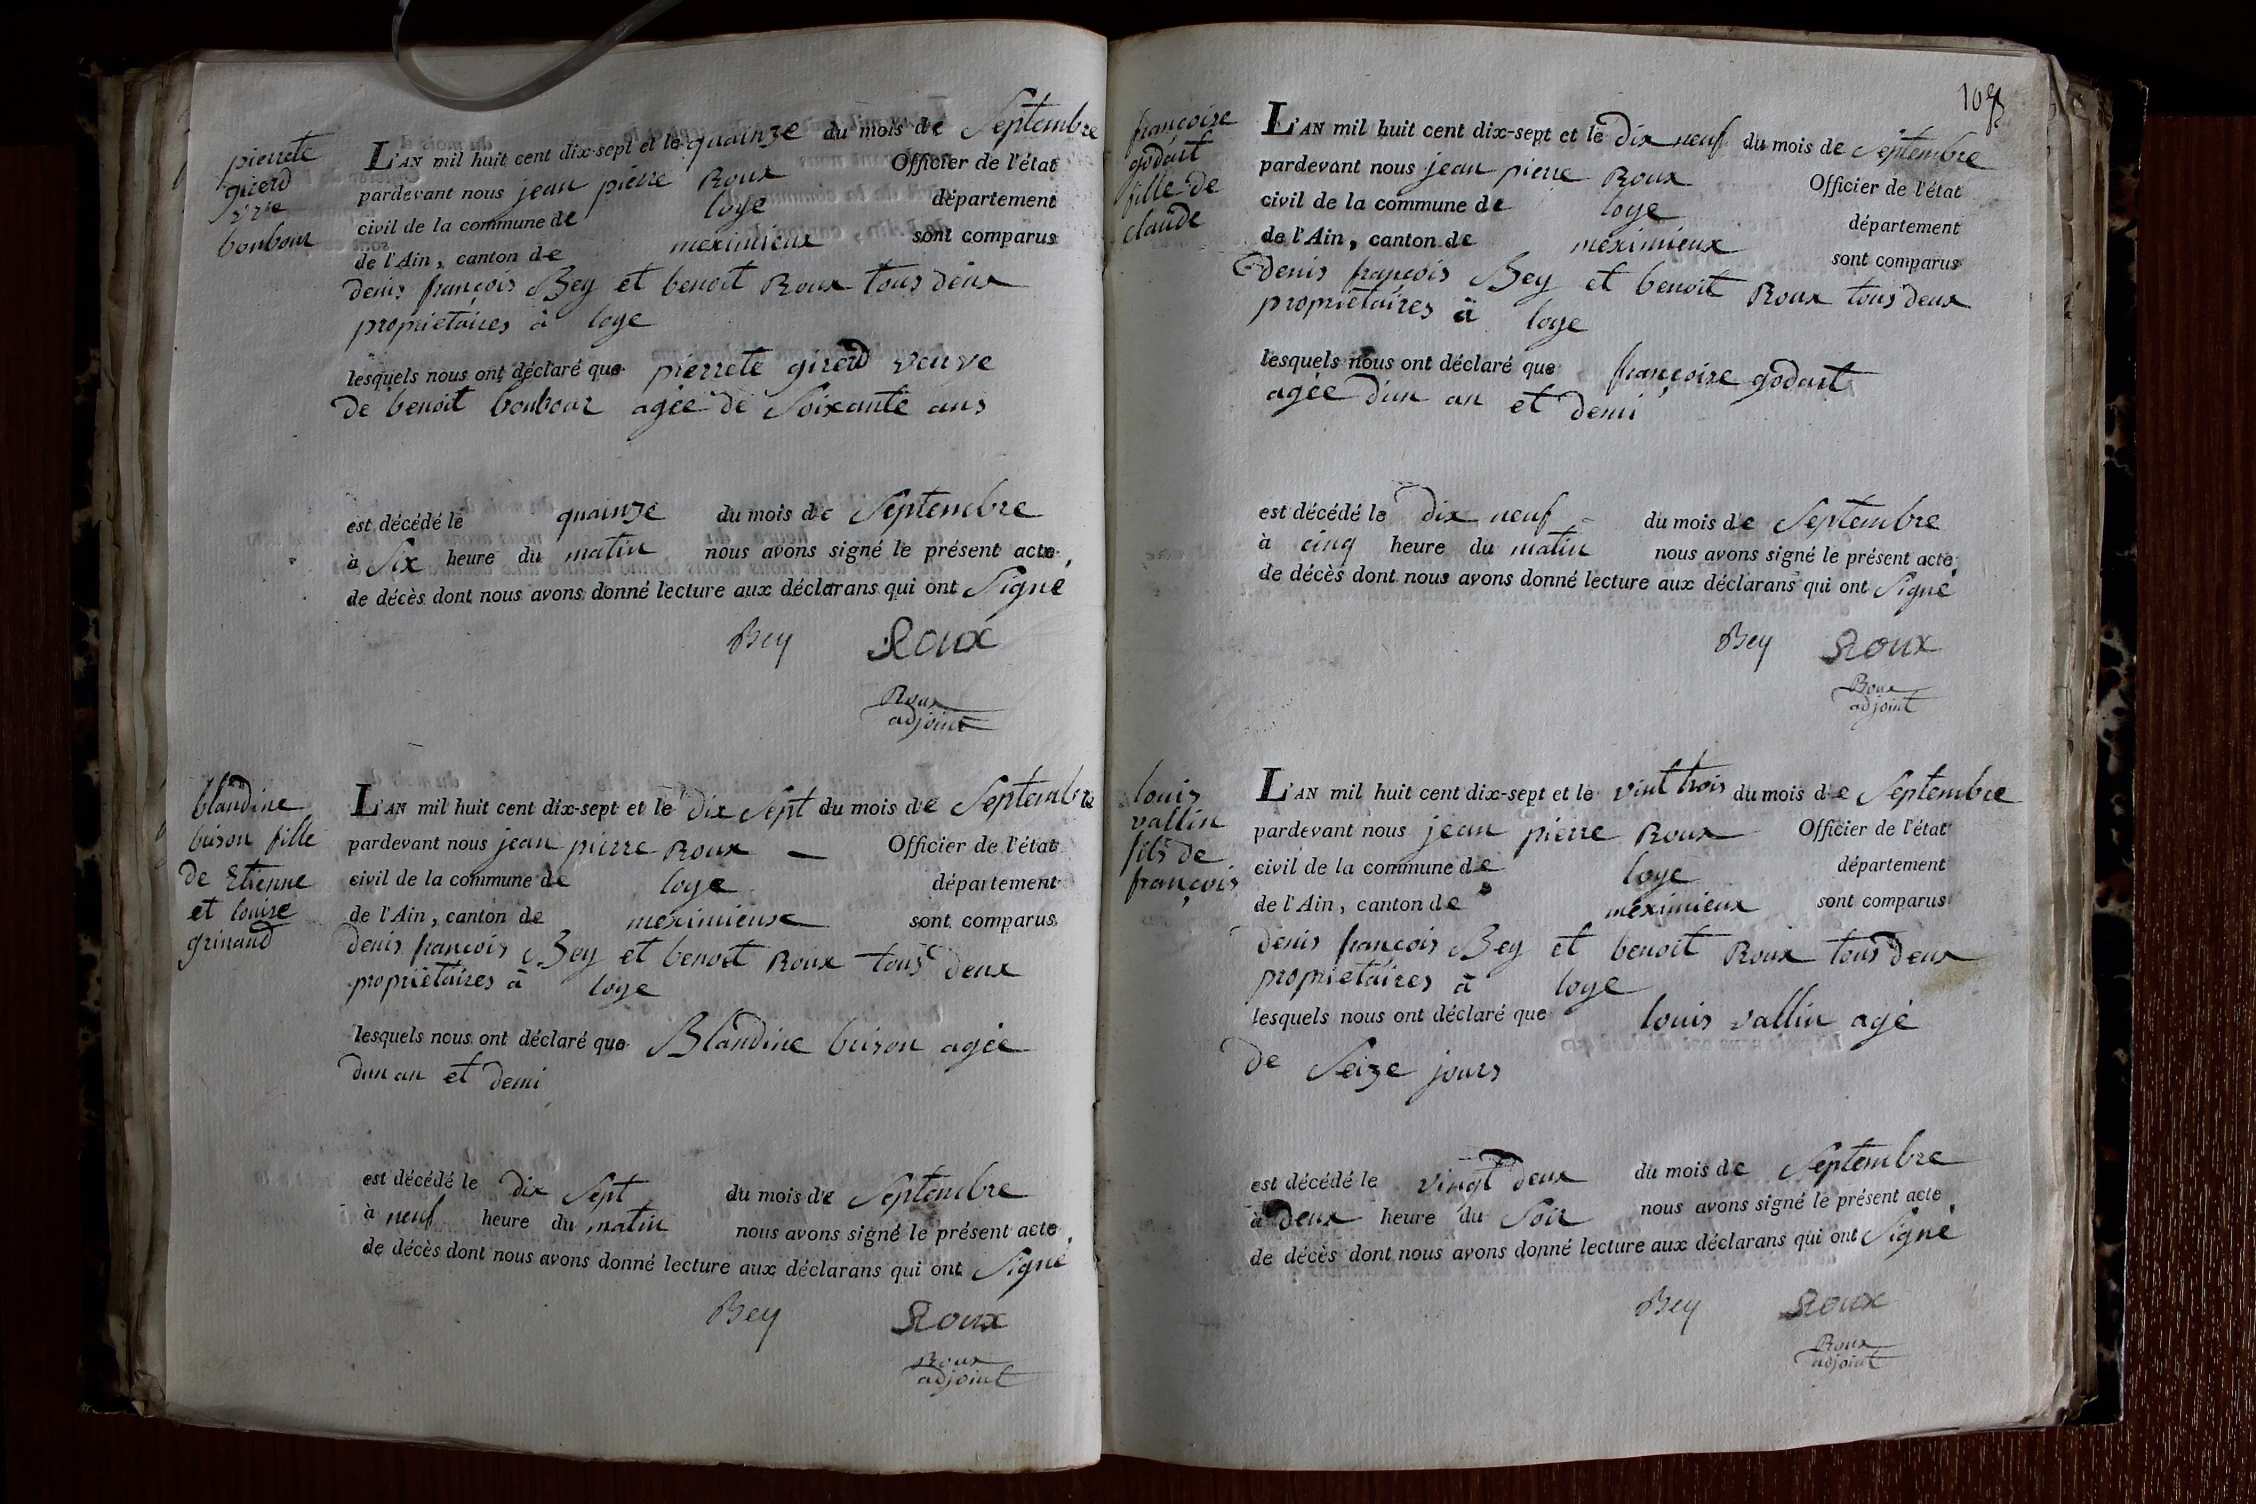 pierrete
girerd
v.ve
bonbour
L'AN mil huit cent dix-sept et le quainze du mois de Septembre
pardevant nous jean pierre Roux Officier de l'état
civil de la commune de loye département
de l'Ain, canton de meximieux sont comparus
denis françois Bey et benoit Roux tous deux
proprietaires à loye
lesquels nous ont déclaré que pierrete girerd veuve
de benoit bonbour agée de Soixante ans
est décédé le quainze du mois de Septembre
à Six heure du matin nous avons signé le présent acte
de décès dont nous avons donné lecture aux déclarans qui ont Signé
Bey Roux
Roux
adjoint
blandine
buison fille
de Etienne
et louise
grinand
L'AN mil huit cent dix-sept et le dix Sept du mois de Septembre
pardevant nous jean pierre Roux Officier de l'état
civil de la commune de loye département
de l'Ain, canton de meximieux sont comparus
denis françois Bey et benoit Roux tous deux
proprietaires à loye
lesquels nous ont déclaré que Blandine buison agée
dun an et demi
est décédé le dix Sept du mois de Septembre
à neuf heure du matin nous avons signé le présent acte
de décès dont nous avons donné lecture aux déclarans qui ont Signé
Bey Roux
Roux
adjoint
françoise
godart
fille de
claude
L'AN mil huit cent dix-sept et le dix neuf du mois de Septembre
pardevant nous jean pierre Roux Officier de l'état
civil de la commune de loye département
de l'Ain, canton de meximieux sont comparus
denis françois Bey et benoit Roux tous deux
proprietaires à loye
lesquels nous ont déclaré que françoise godart
agée d'un an et demi
est décédé le dix neuf du mois de Septembre
à cinq heure du matin nous avons signé le présent acte
de décès dont nous avons donné lecture aux déclarans qui ont Signé
Bey Roux
Roux
adjoint
louis
vallin
fils de
françois
L'AN mil huit cent dix-sept et le vint trois du mois de Septembre
pardevant nous jean pierre Roux Officier de l'état
civil de la commune de loye département
de l'Ain, canton de meximieux sont comparus
denis françois Bey et benoit Roux tous deux
proprietaires à loye
lesquels nous ont déclaré que louis vallin agé
de Seize jours
est décédé le vingt deux du mois de Septembre
à deux heure du Soir nous avons signé le présent acte
de décès dont nous avons donné lecture aux déclarans qui ont Signé
Bey Roux
Roux
adjoint